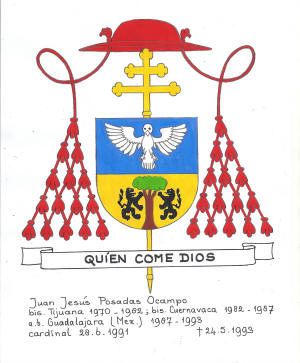 QUÍEN COME DIOS
Juan Jesús Posadas Ocampo
bis. Tijuana 1970 - 1982 ; bis. Cuernavaca 1982 - 1987
a.b. Guadalajara (Mex.) 1987 - 1993
cardinal 28.6.1991 † 24.5.1993